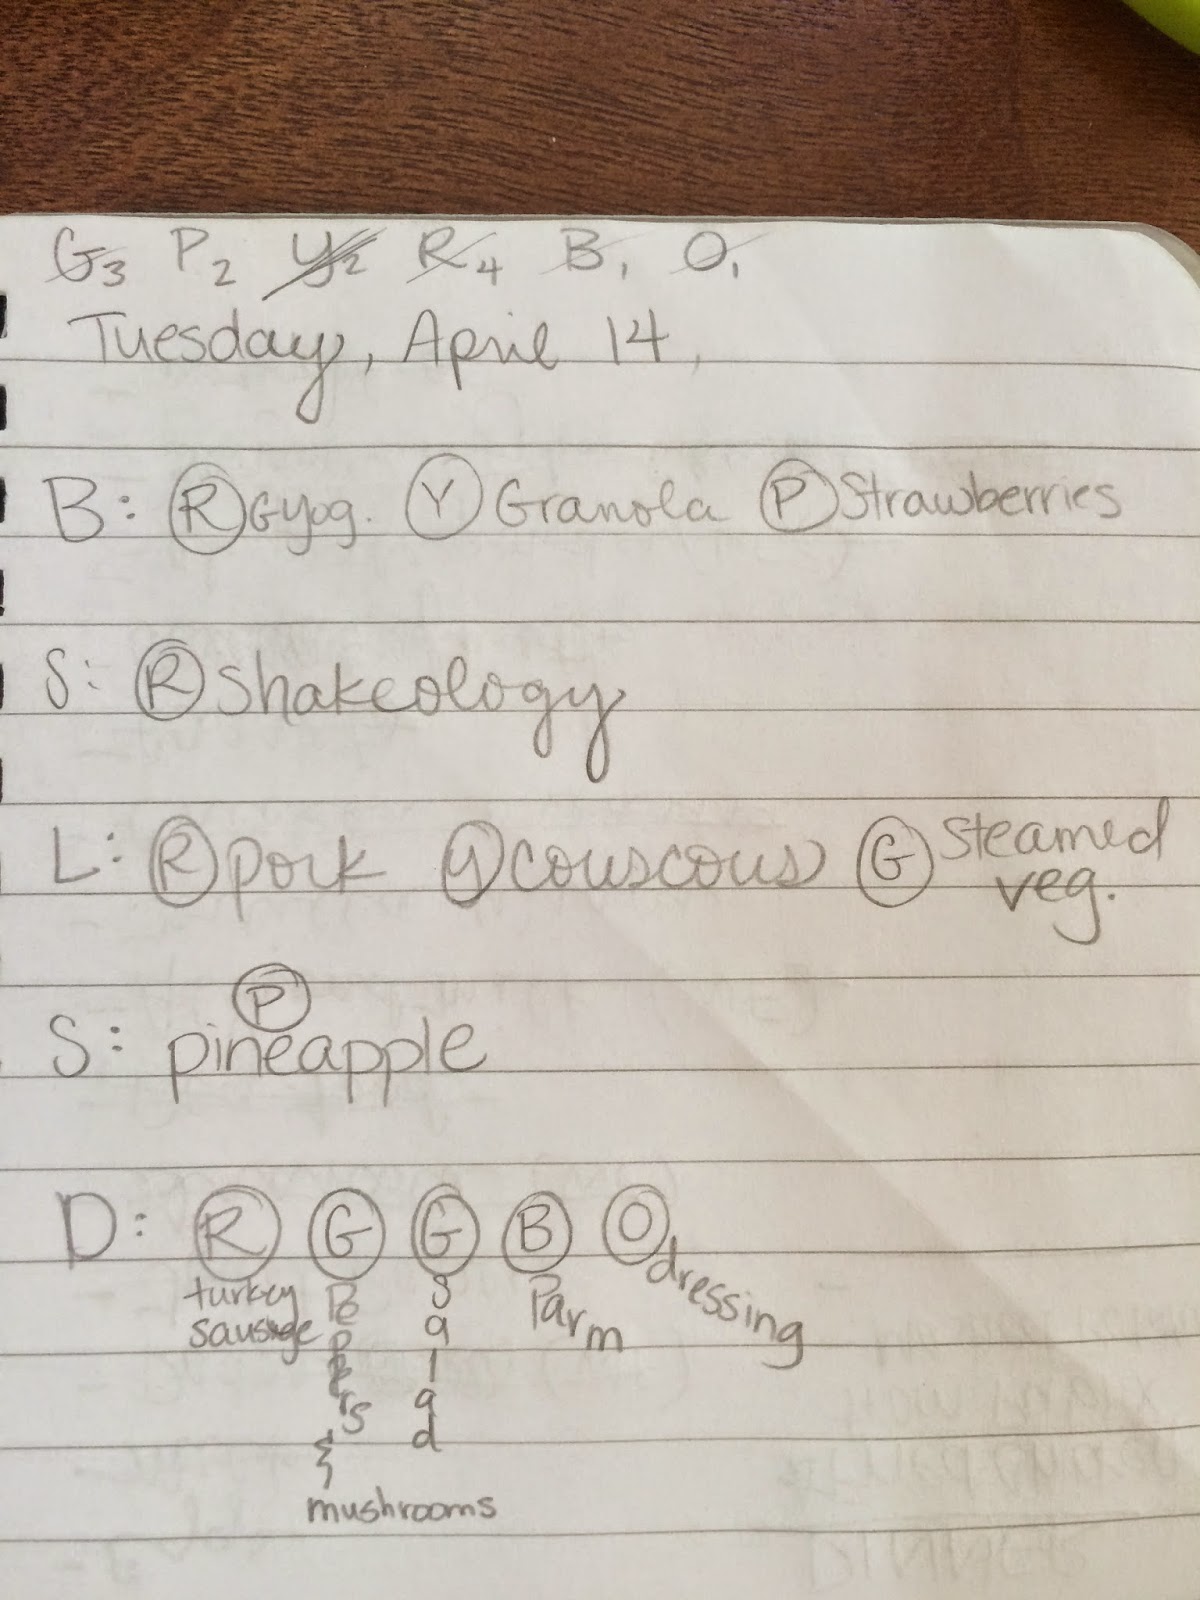 G3 P2 Y2 R4 B1 O1
Tuesday, April 14,
B: R Gyog. Y Granola P Strawberries
S: R Shakeology
L: R pork Y couscous G Steamed
veg.
P
S: pineapple
D: R G G B O
turkey sausage
Peppers & mushrooms
Salad
Parm
dressing